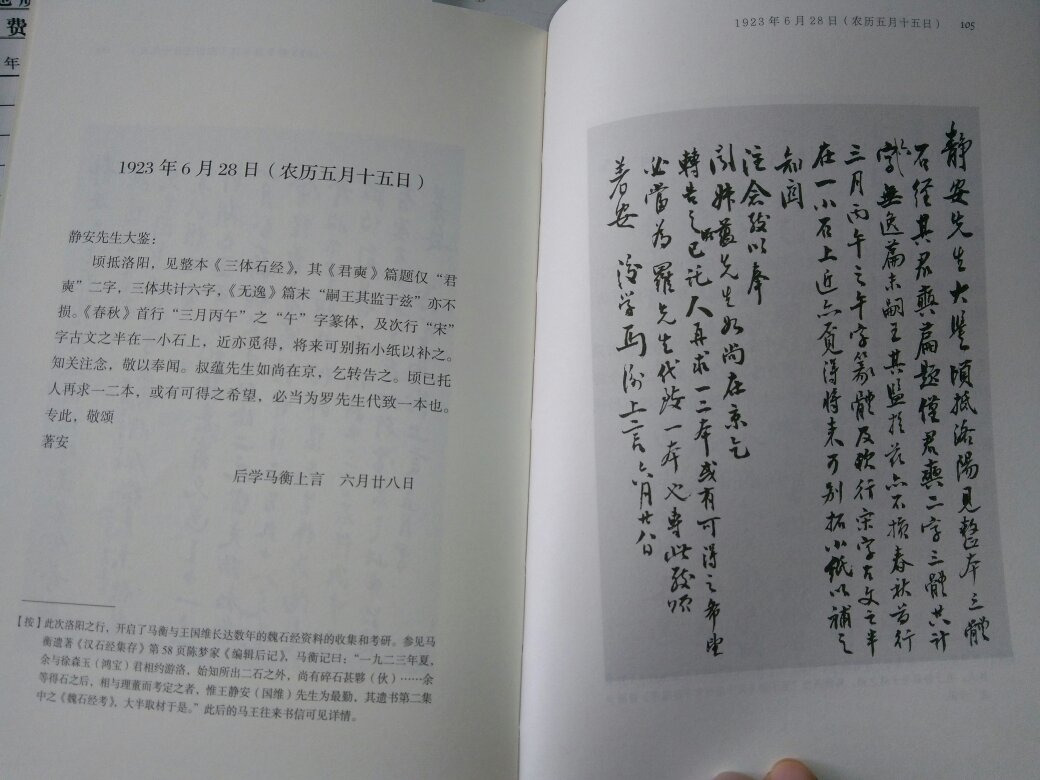 费
年
1923年6月28日（农历五月十五日）
静安先生大鉴：
顷抵洛阳，见整本《三体石经》，其《君奭》篇题仅“君
奭”二字，三体共计六字，《无逸》篇末“嗣王其监于兹”亦不
损。《春秋》首行“三月丙午”之“午”字篆体，及次行“宋”
字古文之半在一小石上，近亦觅得，将来可别拓小纸以补之。
知关注念，敬以奉闻。叔蕴先生如尚在京，乞转告之。顷已托
人再求一二本，或有可得之希望，必当为罗先生代致一本也。
专此，敬颂
著安
后学马衡上言　六月廿八日
【按】此次洛阳之行，开启了马衡与王国维长达数年的魏石经资料的收集和考研。参见马
衡遗著《汉石经集存》第58页陈梦家《编辑后记》，马衡记曰：“一九二三年夏，
余与徐森玉（鸿宝）君相约游洛，始知所出二石之外，尚有碎石甚夥（伙）……余
等得石之后，相与理董而考定之者，惟王静安（国维）先生为最勤，其遗书第二集
中之《魏石经考》，大半取材于是。”此后的马王往来书信可见详情。
1923年6月28日（农历五月十五日） 105
静安先生大鉴顷抵洛陽見整本三體
石经其君奭篇題僅君奭二字三體共计
無逸篇末嗣王其監於兹亦不損春秋首行
三月丙午之午字篆體及次行宋字古文之半
在一小石上近亦觅得将来可别拓小紙以補之
知関
注念敬以奉
闻 先生如尚在京乞
轉告之 已託人再求一二本或有可得之希望
必當為羅先生代致一本也專此敬颂
著安 後学马衡上言六月廿八日